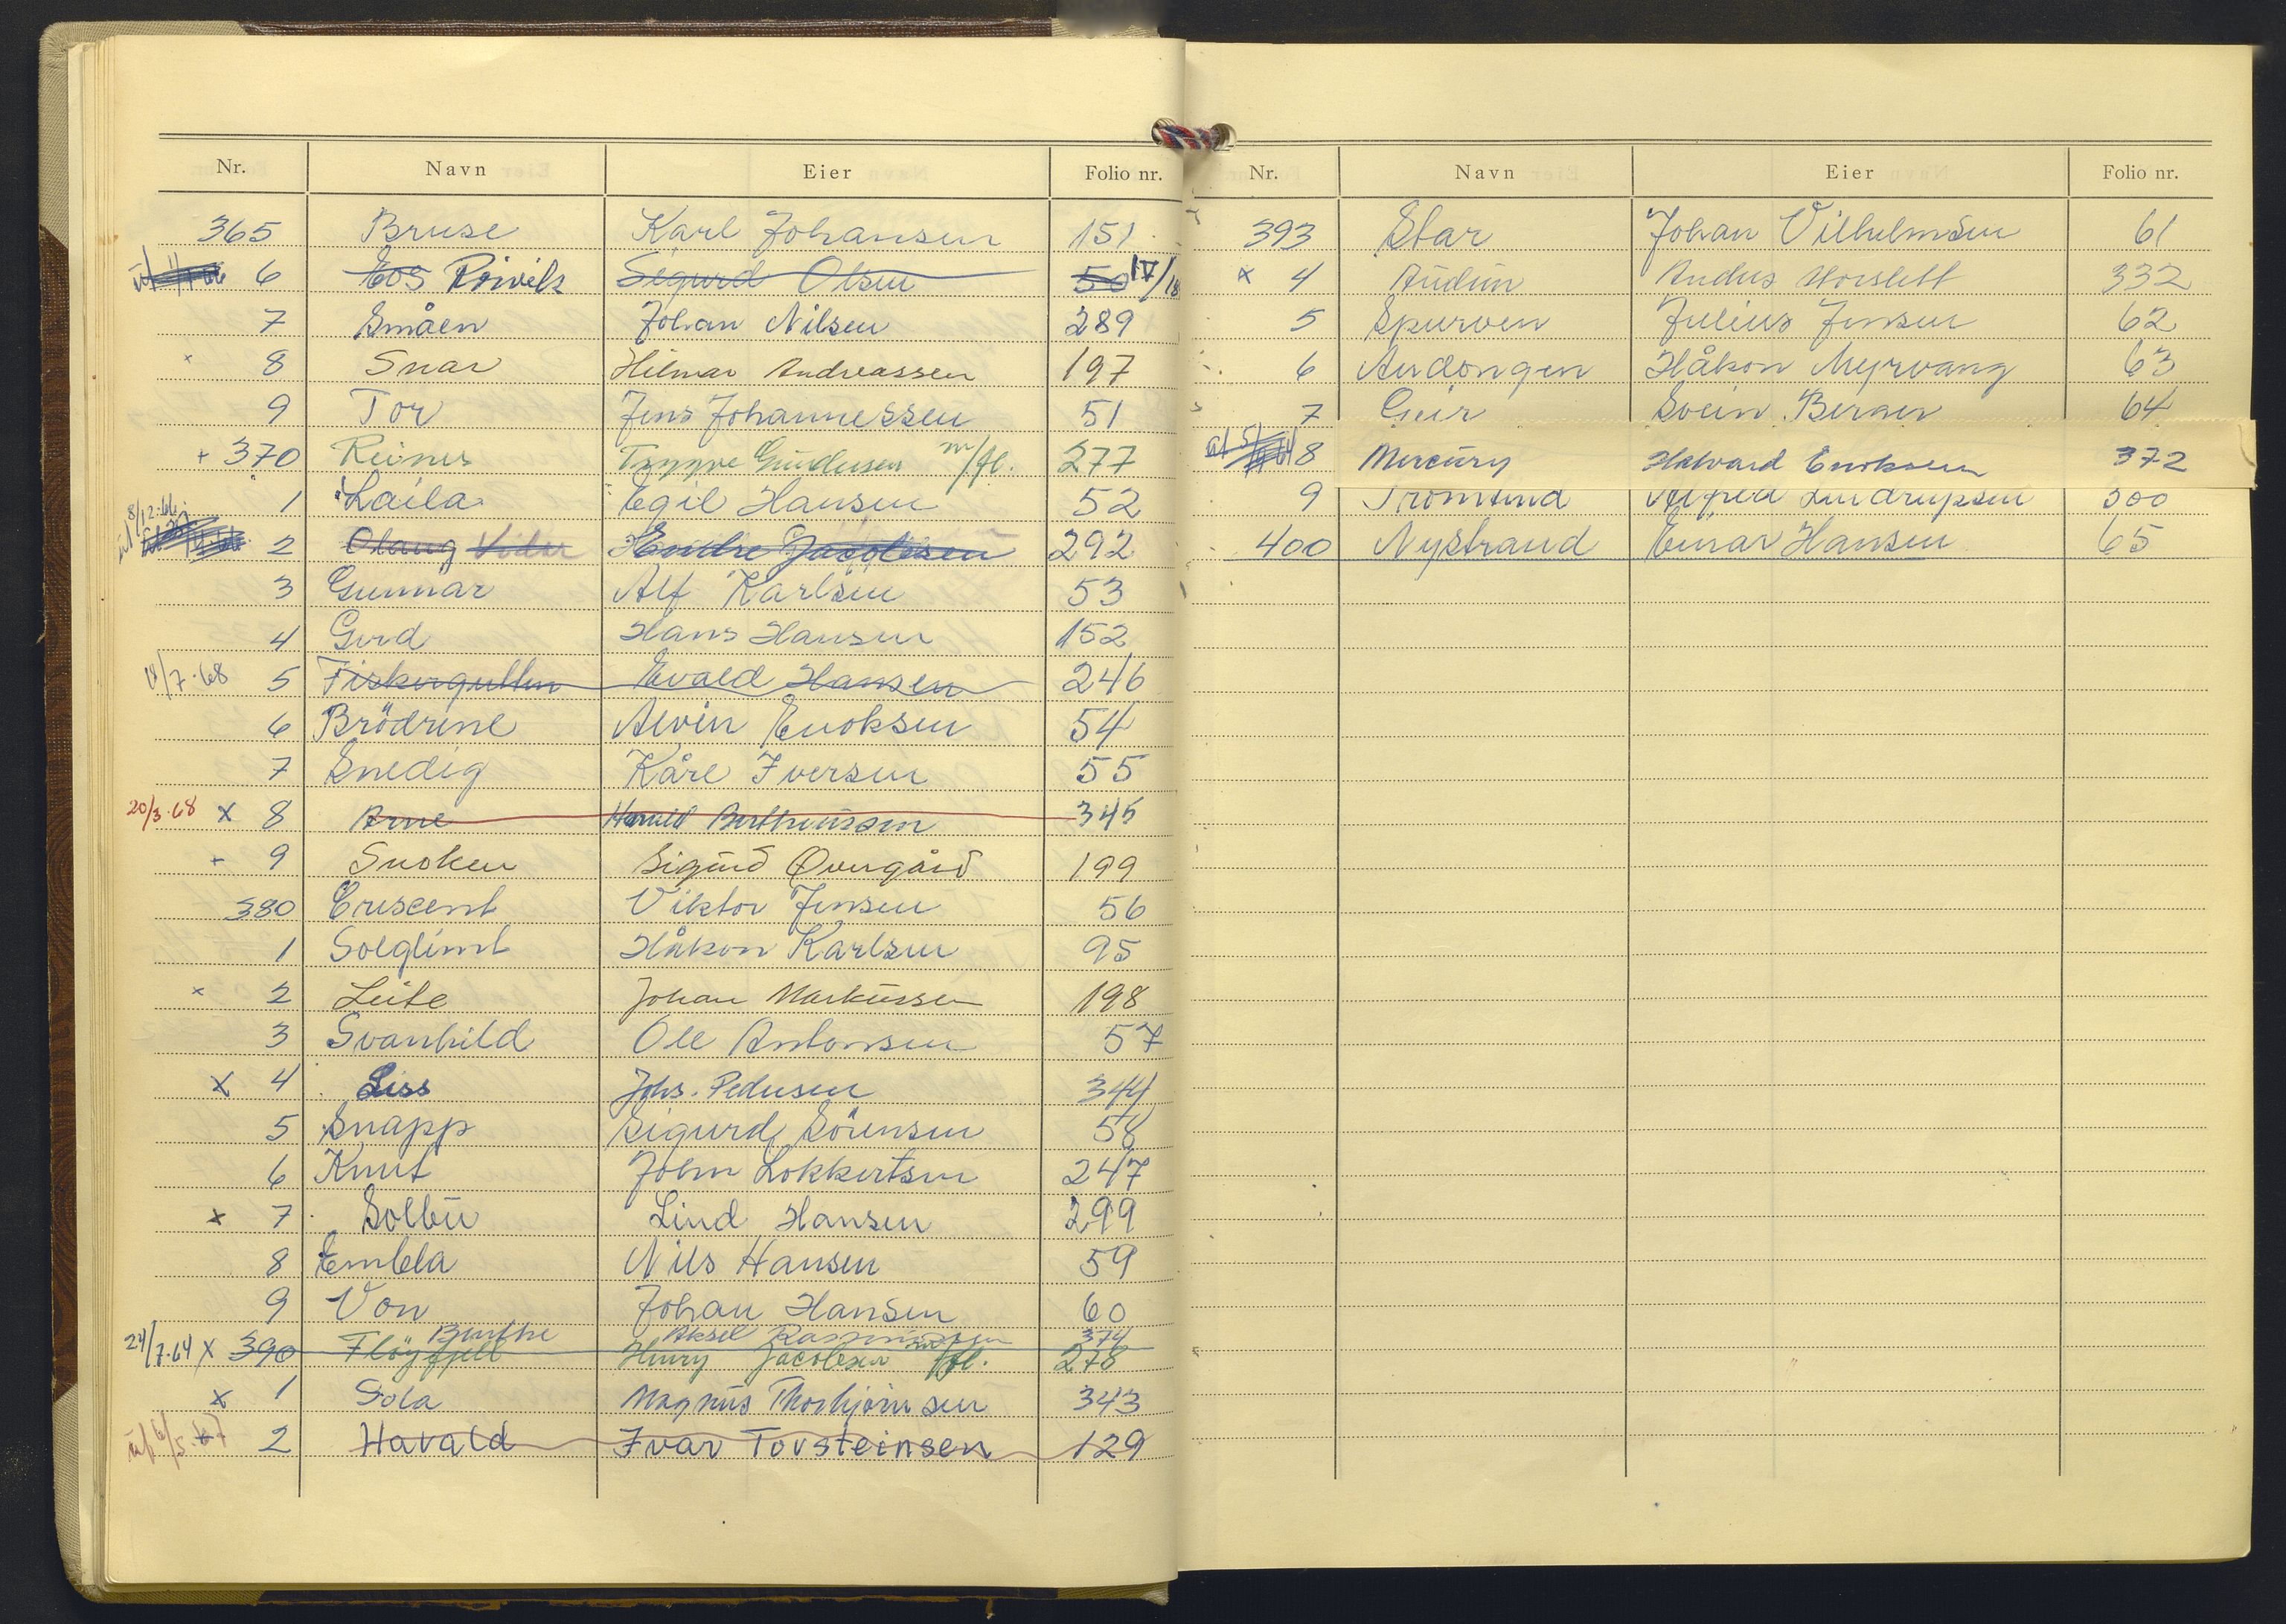 Nr. Navn Eier Folio nr.
365 Bruse Karl Johansen 151
6 Eos Roivik Sigurd Olsen 50 IV/18
7 Småen Johan Nilsen 289
x 8 Snar Hilmar Andreassen 197
9 Tor Jens Johannessen 51
+ 370 Reinus Trygve Gundersen m/fl. 277
1 Laila Egil Hansen 52
8/12.66
2 Olaug Vidar Endre Jacobsen 292
3 Gunnar Alf Karlsen 53
4 Gerd Hans Hansen 152
18/7.68 5 Fiskergutten Evald Hansen 246
6 Brödrene Alvin Enoksen 54
7 Snedig Kåre Iversen 55
20/3.68 x 8 Arne Harald Bertheussen 345
+ 9 Snoken Sigurd Overgård 199
380 Crescent Viktor Jensen 56
1 Solglimt Håkon Karlsen 95
x 2 Leite Johan Markussen 198
3 Svanhild Ole Antonsen 57
x 4 Liss Johs. Pedersen 344
5 Snapp Sigurd Sörensen 58
6 Knut John Lokkertsen 247
x 7 Solbu Lind Hansen 299
8 Embla Nils Hansen 59
9 Von Johan Hansen 60
Benthe Aksel Rasmussen 374
24/7.64 x 390 Flöyfjell Henry Jacobsen m/fl. 278
x 1 Sola Magnus Thorbjörnsen 343
ut 6/5.67 2 Havald Ivar Torsteinsen 129
Nr. Navn Eier Folio nr.
393 Star Johan Vilhelmsen 61
x 4 Audun Anders Horslett 332
5 Spurven Julius Jensen 62
6 Andongen Håkon Myrvang 63
7 Geir Svein Berger 64
8 Mercury Halvard Enoksen 372
9 Tromsund Alfred Lindrupsen 300
400 Nystrand Einar Hansen 65